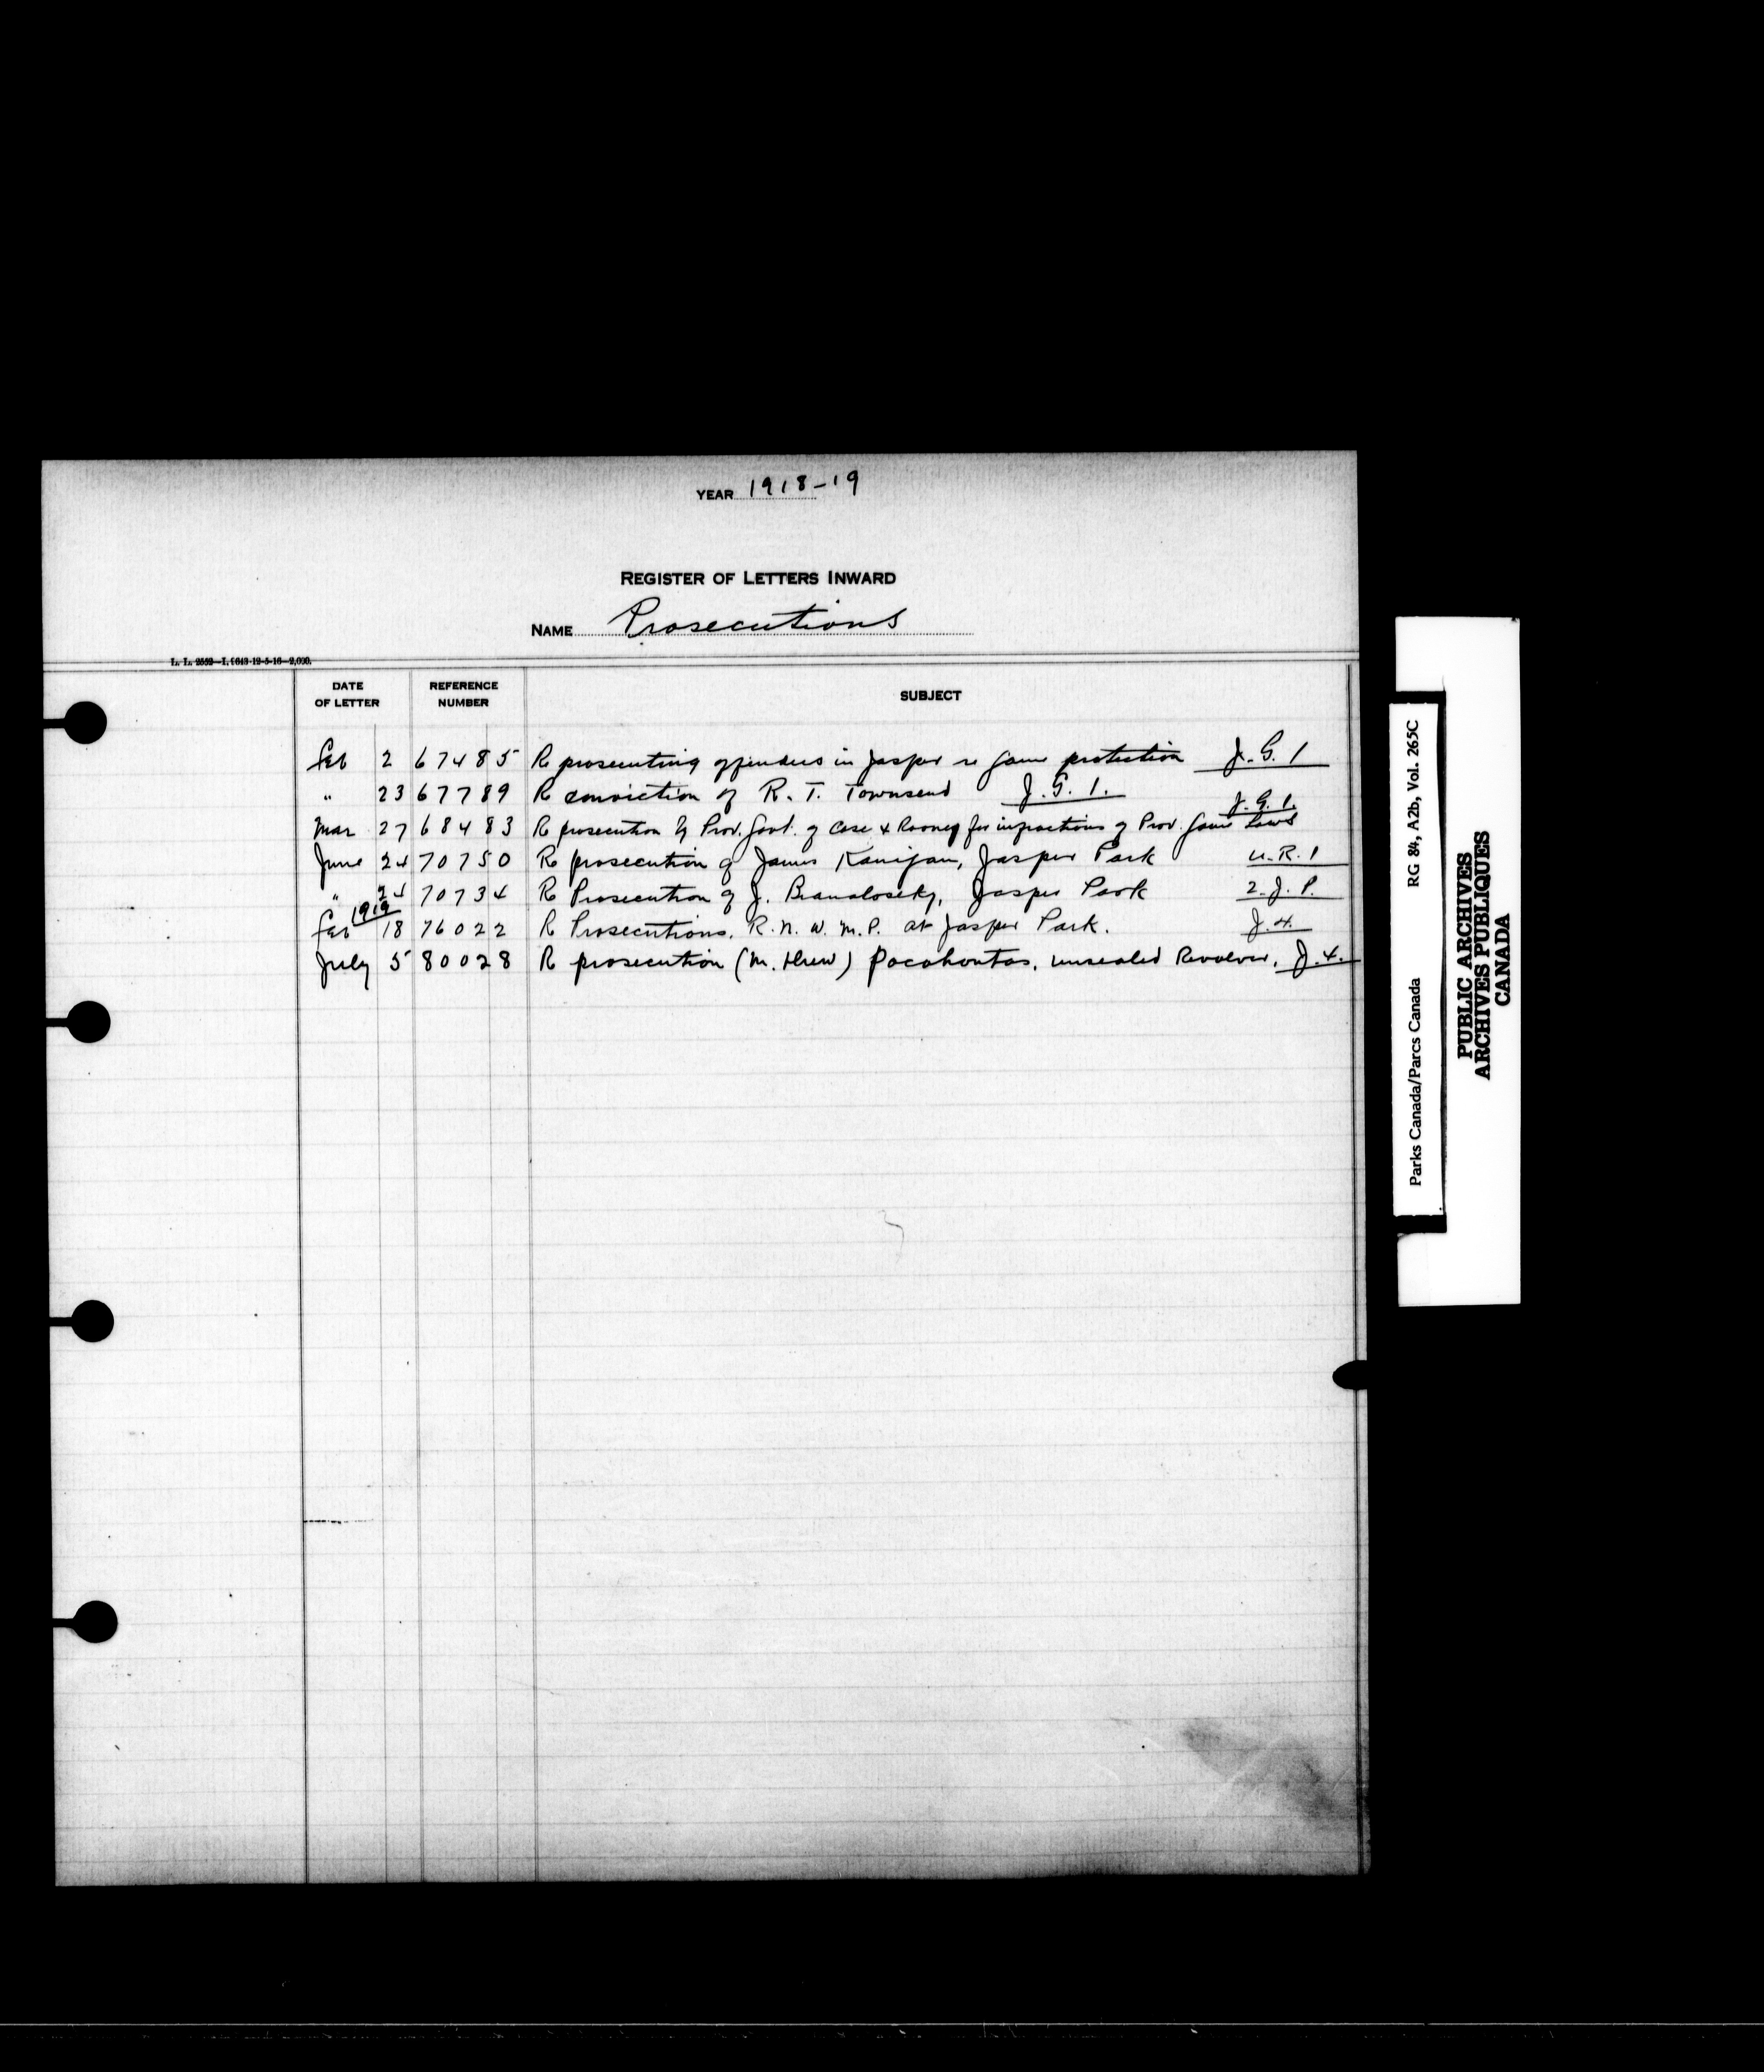 YEAR 1918-19
REGISTER OF LETTERS INWARD
NAME Prosecutions
DATE OF LETTER REFERENCE NUMBER SUBJECT
Feb 2 67485 R prosecuting offenders in Jasper re game protection J.G.1
" 23 67789 R conviction of R. T. Townsend J.G.1.
Mar 27 68483 R prosecution by Prov. Govt. of Case & Rooney for infractions of Prov. Game Laws J.G.1.
June 24 70750 R prosecution of James Jasper Park U.R.1
" 24 70734 R Prosecution of J. Jasper Park 2.J.P.
1919
Feb 18 76022 R Prosecutions, R.N.W.M.P. at Jasper Park. J.4.
July 5 80028 R prosecution (M. Drew) Pocahontas, unsealed Revolver, J.4.
RG 84, A2b, Vol. 265C
Parks Canada/Parcs Canada
PUBLIC ARCHIVES
ARCHIVES PUBLIQUES
CANADA